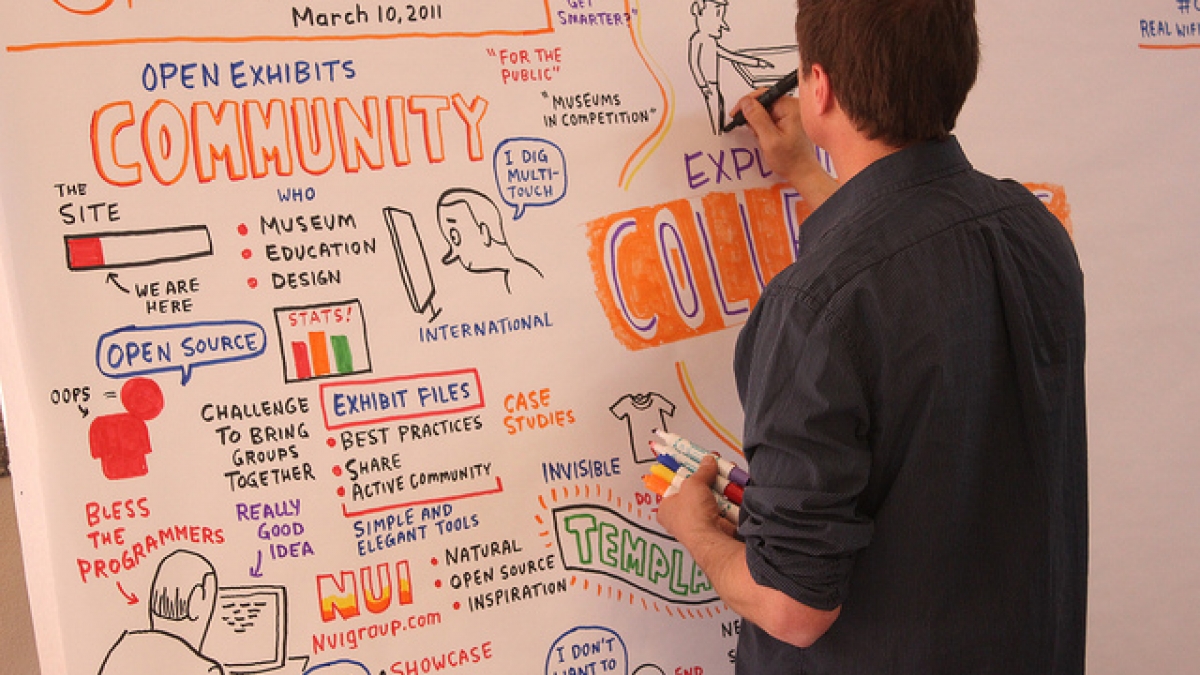 March 10, 2011
GET
SMARTER?"
REAL
OPEN EXHIBITS
COMMUNITY
"FOR THE
PUBLIC"
"MUSEUMS
IN COMPETITION"
I DIG
MULTI-
TOUCH
THE
SITE
WE ARE
HERE
WHO
• MUSEUM
• EDUCATION
• DESIGN
INTERNATIONAL
OPEN SOURCE
STATS!
OOPS =
CHALLENGE
TO BRING
GROUPS
TOGETHER
EXHIBIT FILES
• BEST PRACTICES
• SHARE
• ACTIVE COMMUNITY
CASE
STUDIES
BLESS
THE
PROGRAMMERS
REALLY
GOOD
IDEA
SIMPLE AND
ELEGANT TOOLS
NUI
Nuigroup.com
• NATURAL
• OPEN SOURCE
• INSPIRATION
SHOWCASE
INVISIBLE
I DON'T
WANT TO